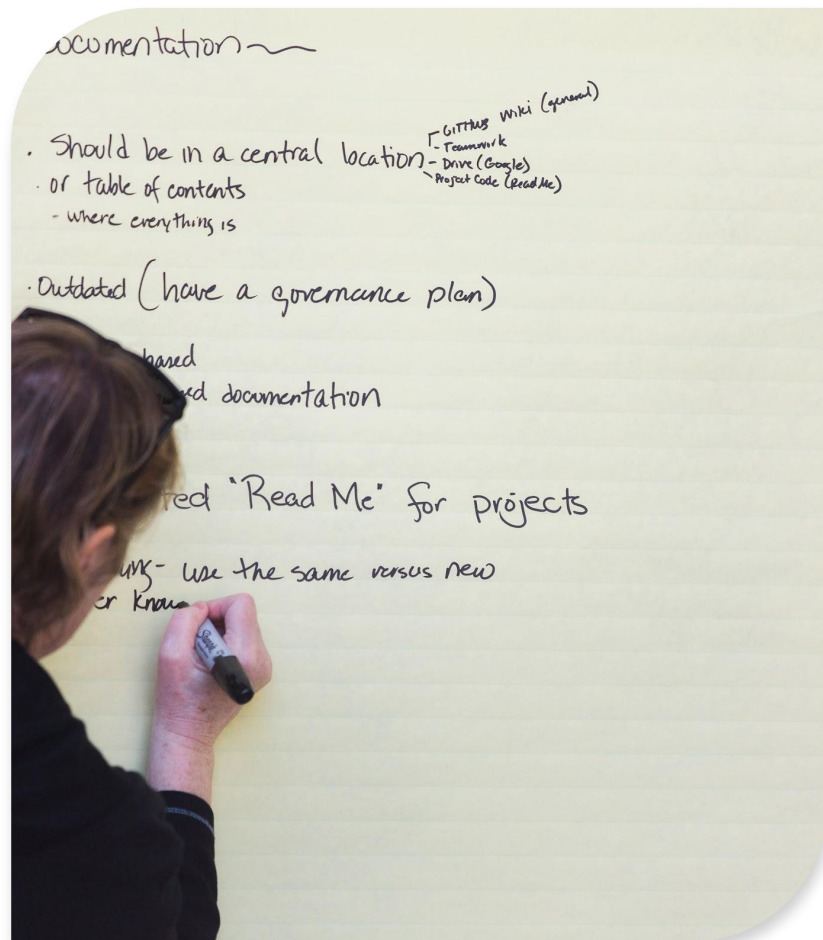 ocumentation
. Should be in a central location
- GITHUB Wiki (general)
- Teamwork
- Drive (Google)
- Project Code (Read Me)
. or table of contents
- where everything is
. Outdated (have a governance plan)
based
documentation
"Read Me" for projects
- use the same versus new
er know
Sharpie